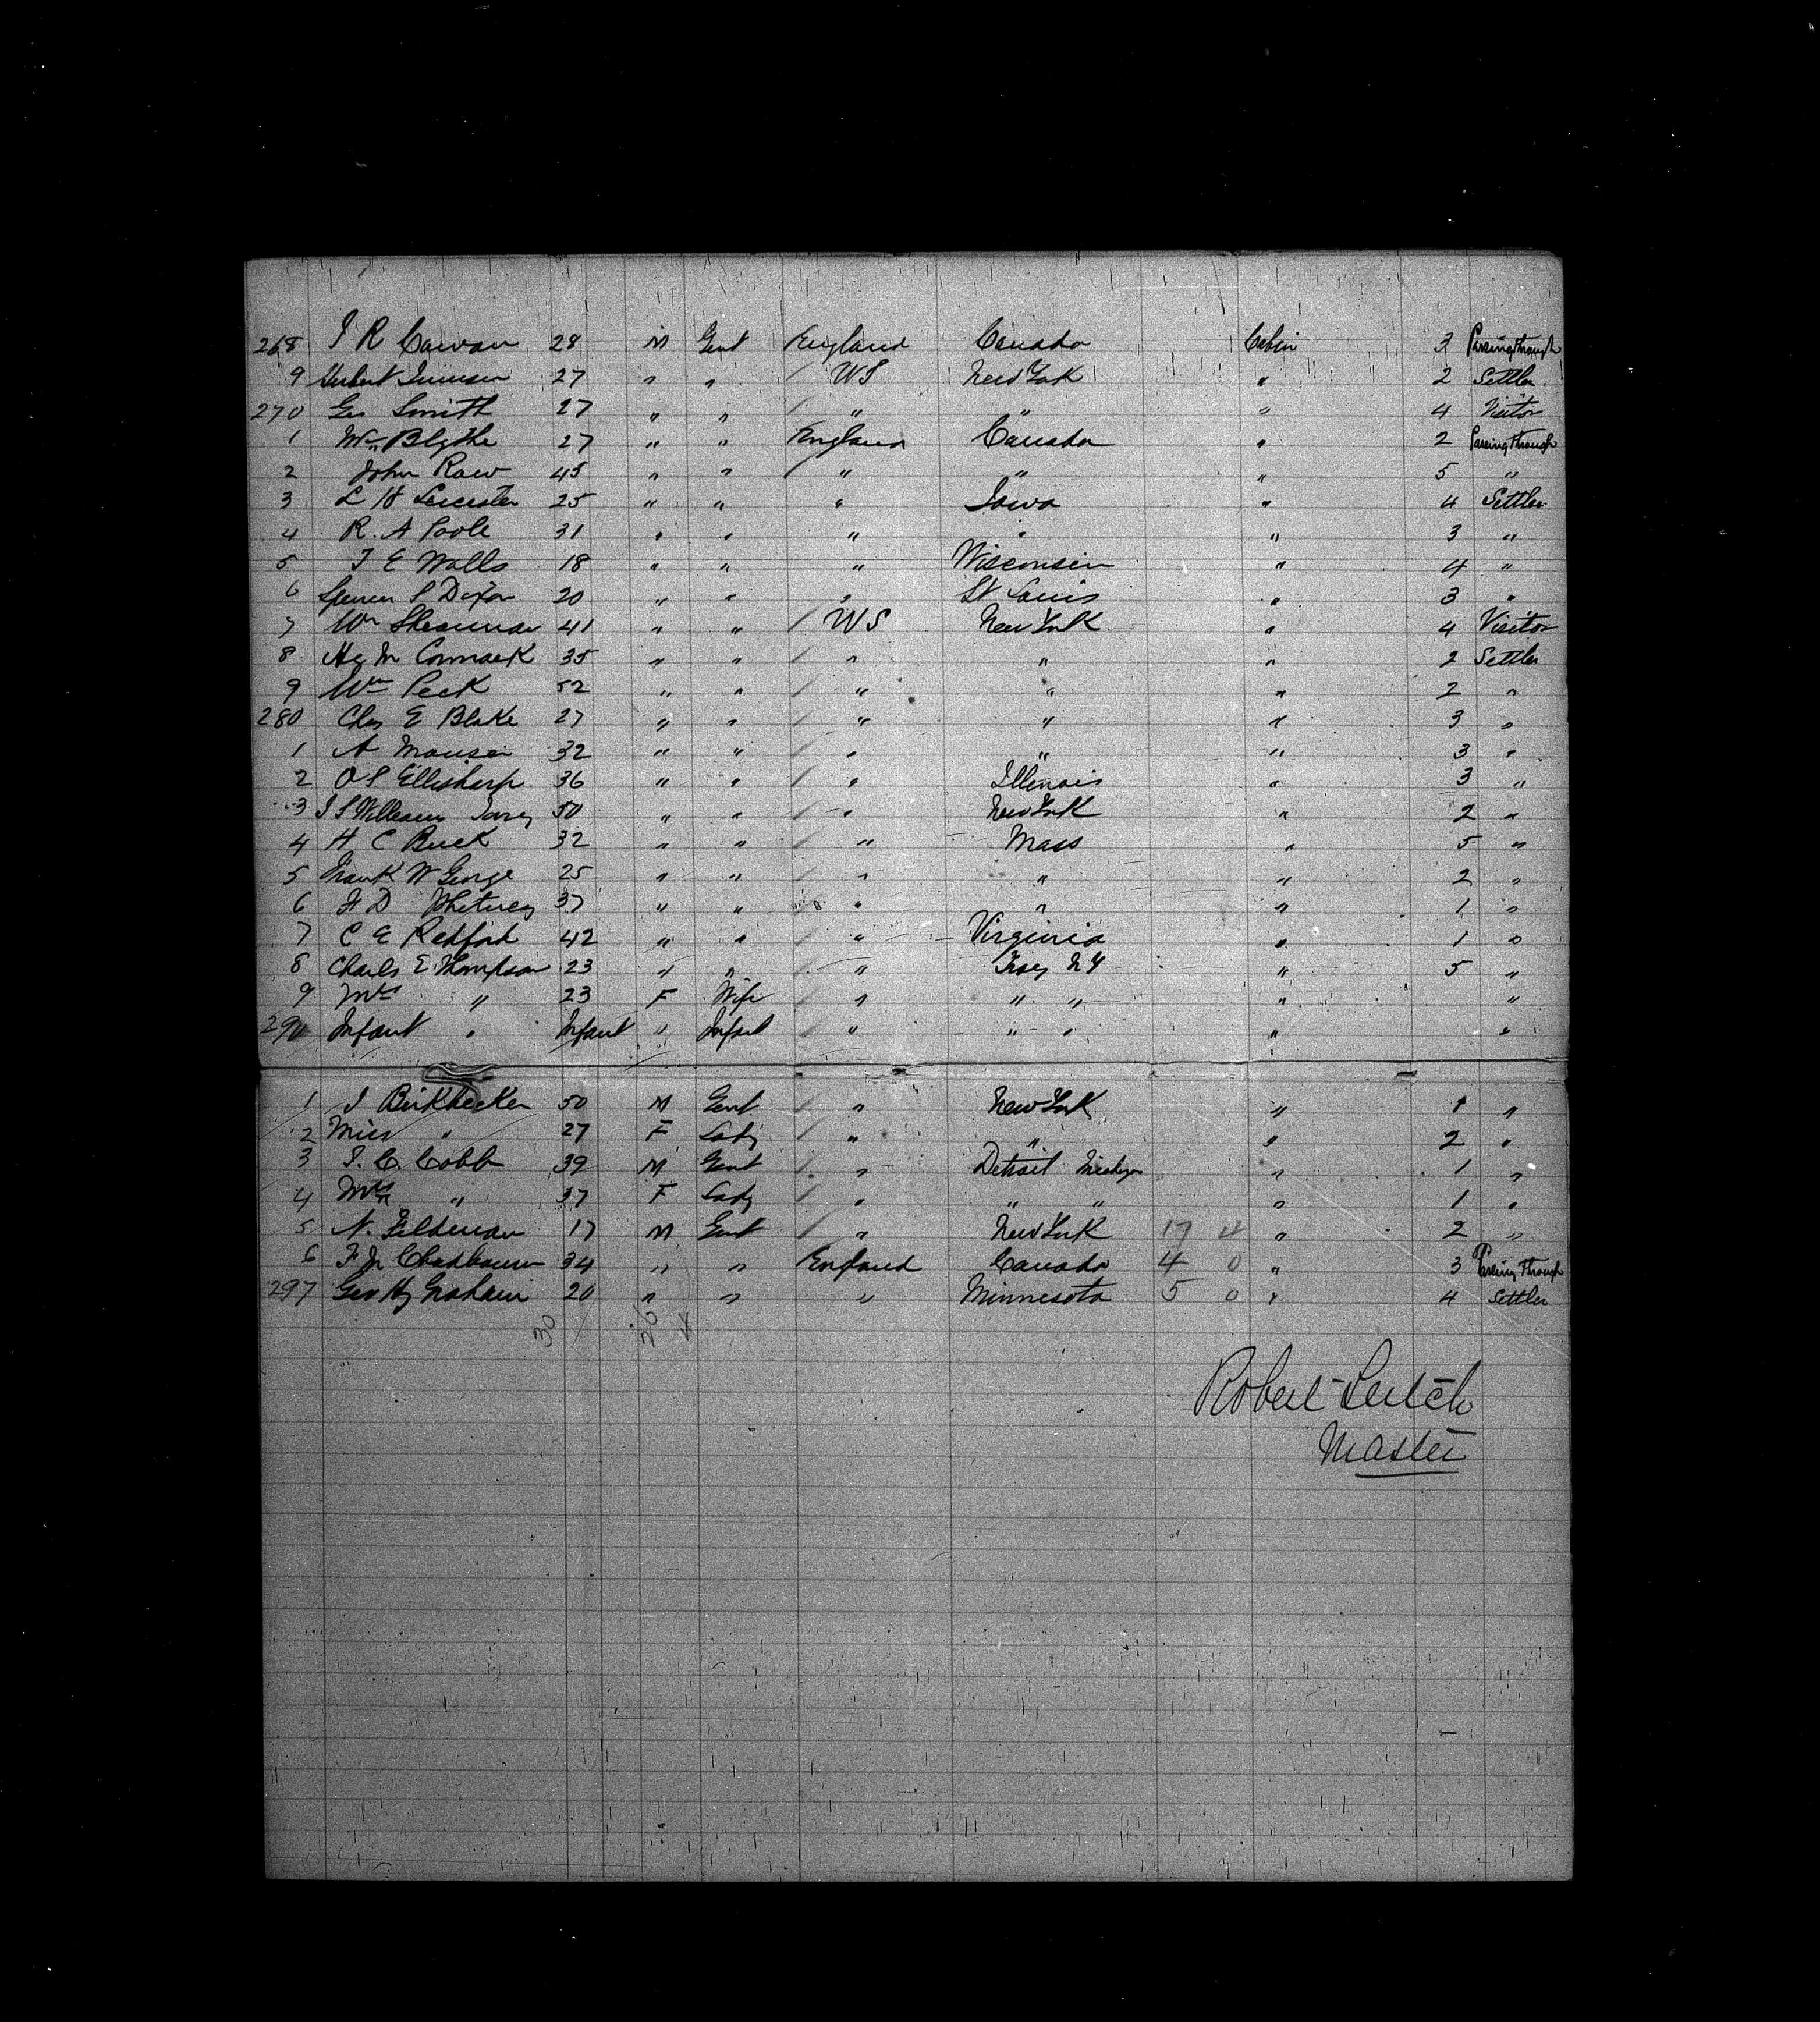 268 J R Cowan 28 M Gent England Canada Cabin 3 Passing through
9 Herbert 27 " " WS New York " 2 Settler
270 Geo Smith 27 " " " " " 4 Visitor
1 Wm Blythe 27 " " England Canada " 2 Passing through
2 John Raw 45 " " " " " 5 "
3 L H Leicester 25 " " " Iowa " 4 Settler
4 R. A Poole 31 " " " " " 3 "
5 T E Walls 18 " " " Wisconsin " 4 "
6 Spencer S Dixon 20 " " " St Louis " 3 "
7 Wm Shearman 41 " " WS New York " 4 Visitor
8 Hy Mc Cormack 35 " " " " " 2 Settler
9 Wm Peck 52 " " " " " 2 "
280 Chas E Blake 27 " " " " " 3 "
1 A Mouser 32 " " " " " 3 "
2 O S Ellisharp 36 " " " Illinois " 3 "
3 J S William 50 " " " New York " 2 "
4 H C Buck 32 " " " Mass " 5 "
5 Frank W George 25 " " " " " 2 "
6 H D Whitney 37 " " " " " 1 "
7 C E Redford 42 " " " Virginia " 1 "
8 Charles E Thompson 23 " " " Troy N Y " 5 "
9 Mrs " 23 F Wife " " " " "
290 Infant " Infant " Infant " " " " "
1 J Birkbecker 50 M Gent " New York " 1 "
2 Miss " 27 F Lady " " " 2 "
3 J. C. Cobb 39 M Gent " Detroit Michgn " 1 "
4 Mrs " 37 F Lady " " " " 1 "
5 N. Feldman 17 M Gent " New York 17 4 " 2 "
6 F M Chadbourn 34 " " England Canada 4 0 " 3 Passing Through
297 Geo Hy Graham 20 " " " Minnesota 5 0 " 4 Settler
30 26 4
Robert Leitch
Master